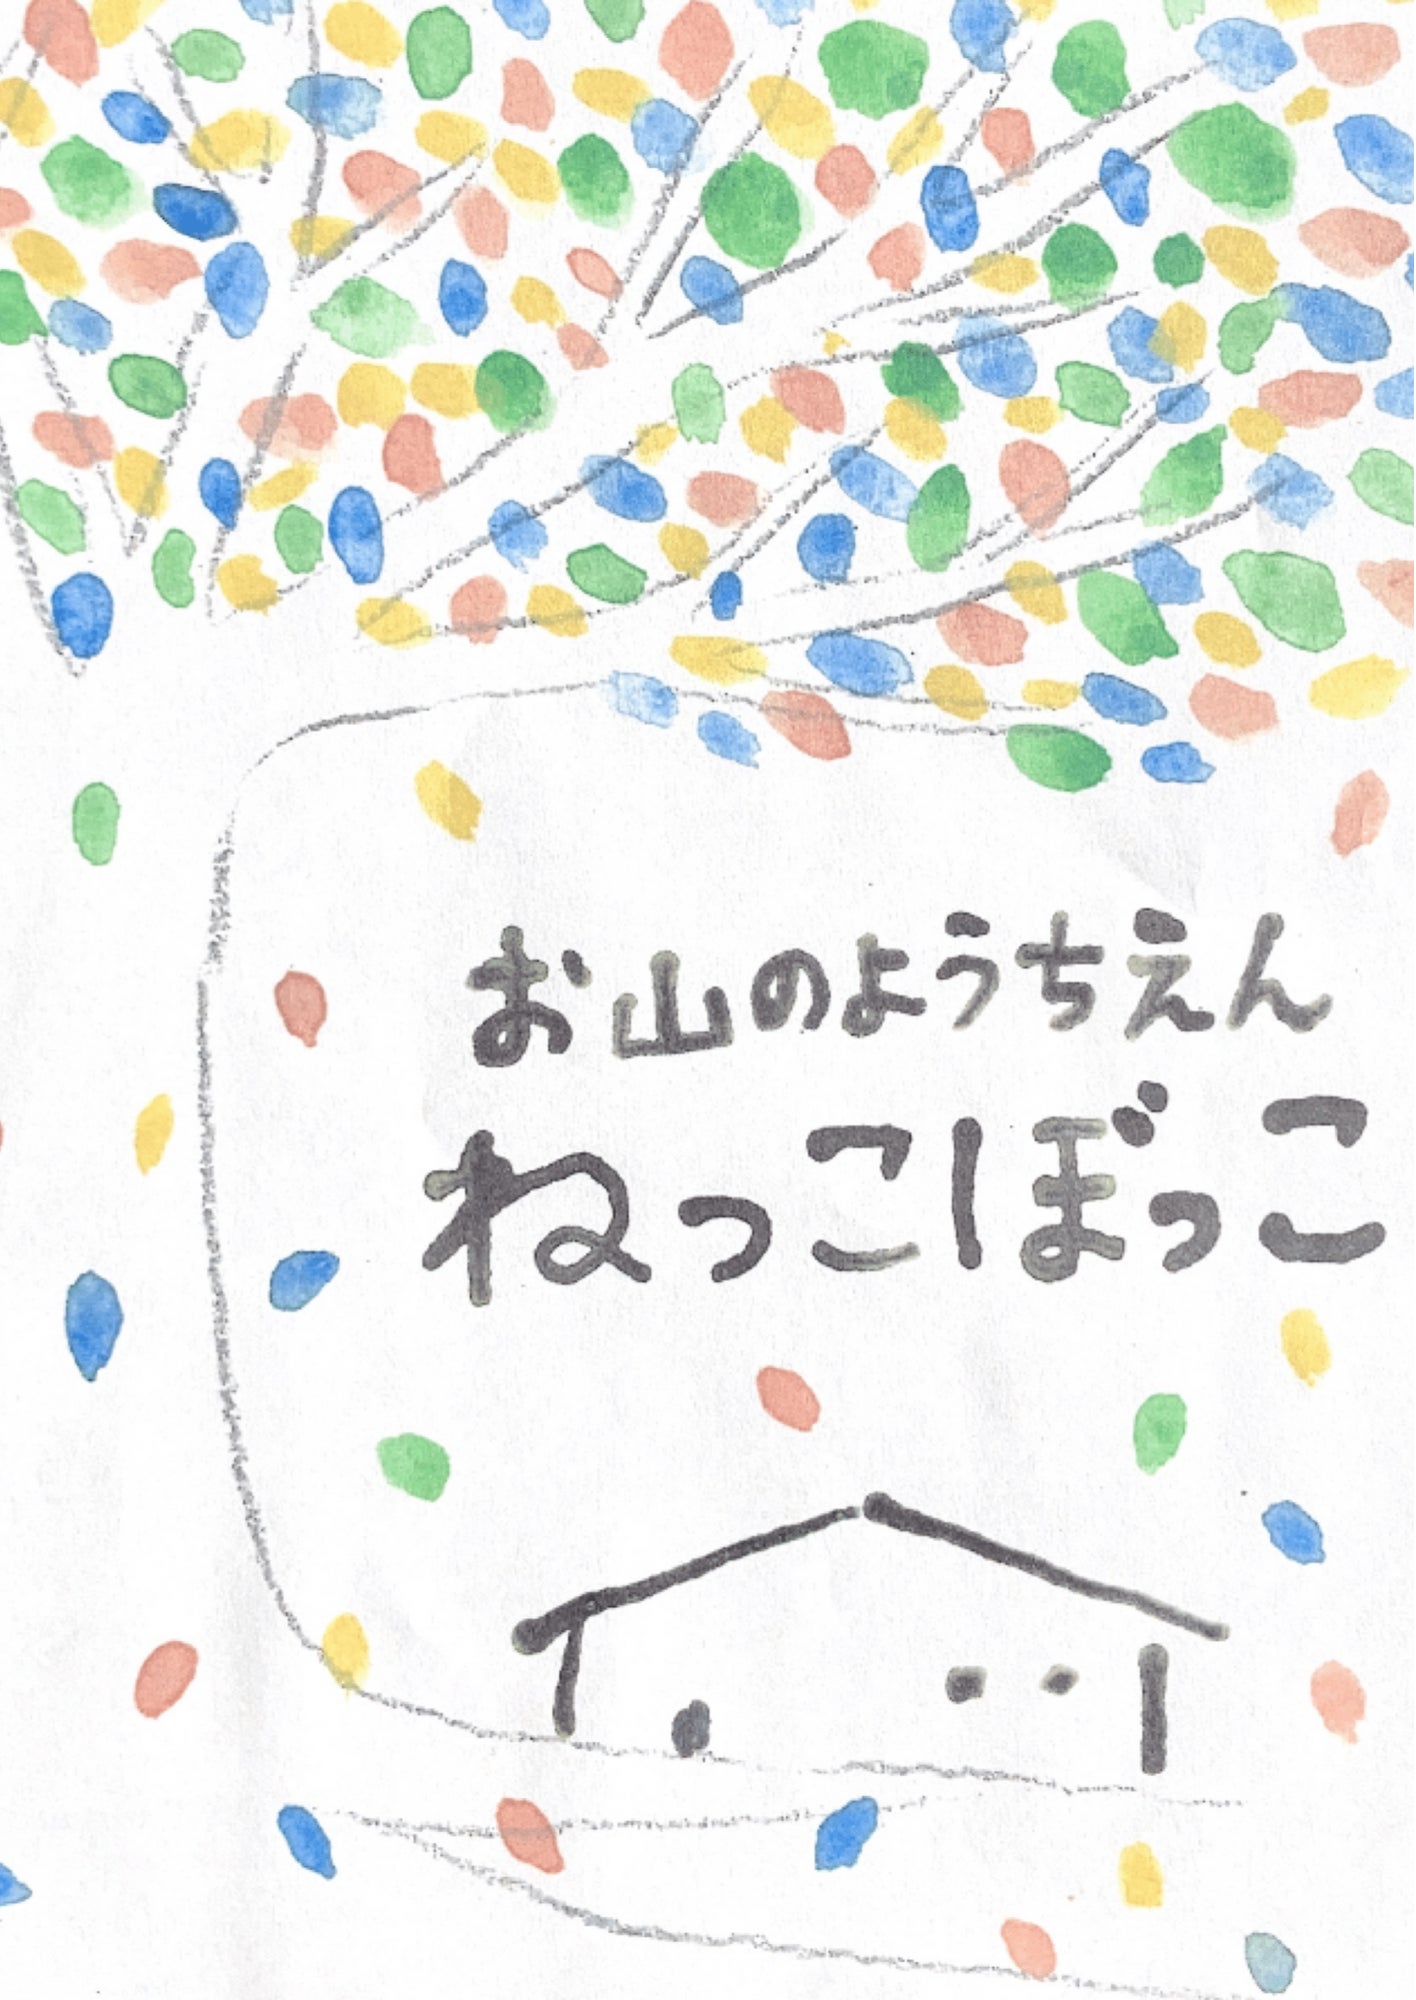 お山のようちえん
ねっこぼっこ